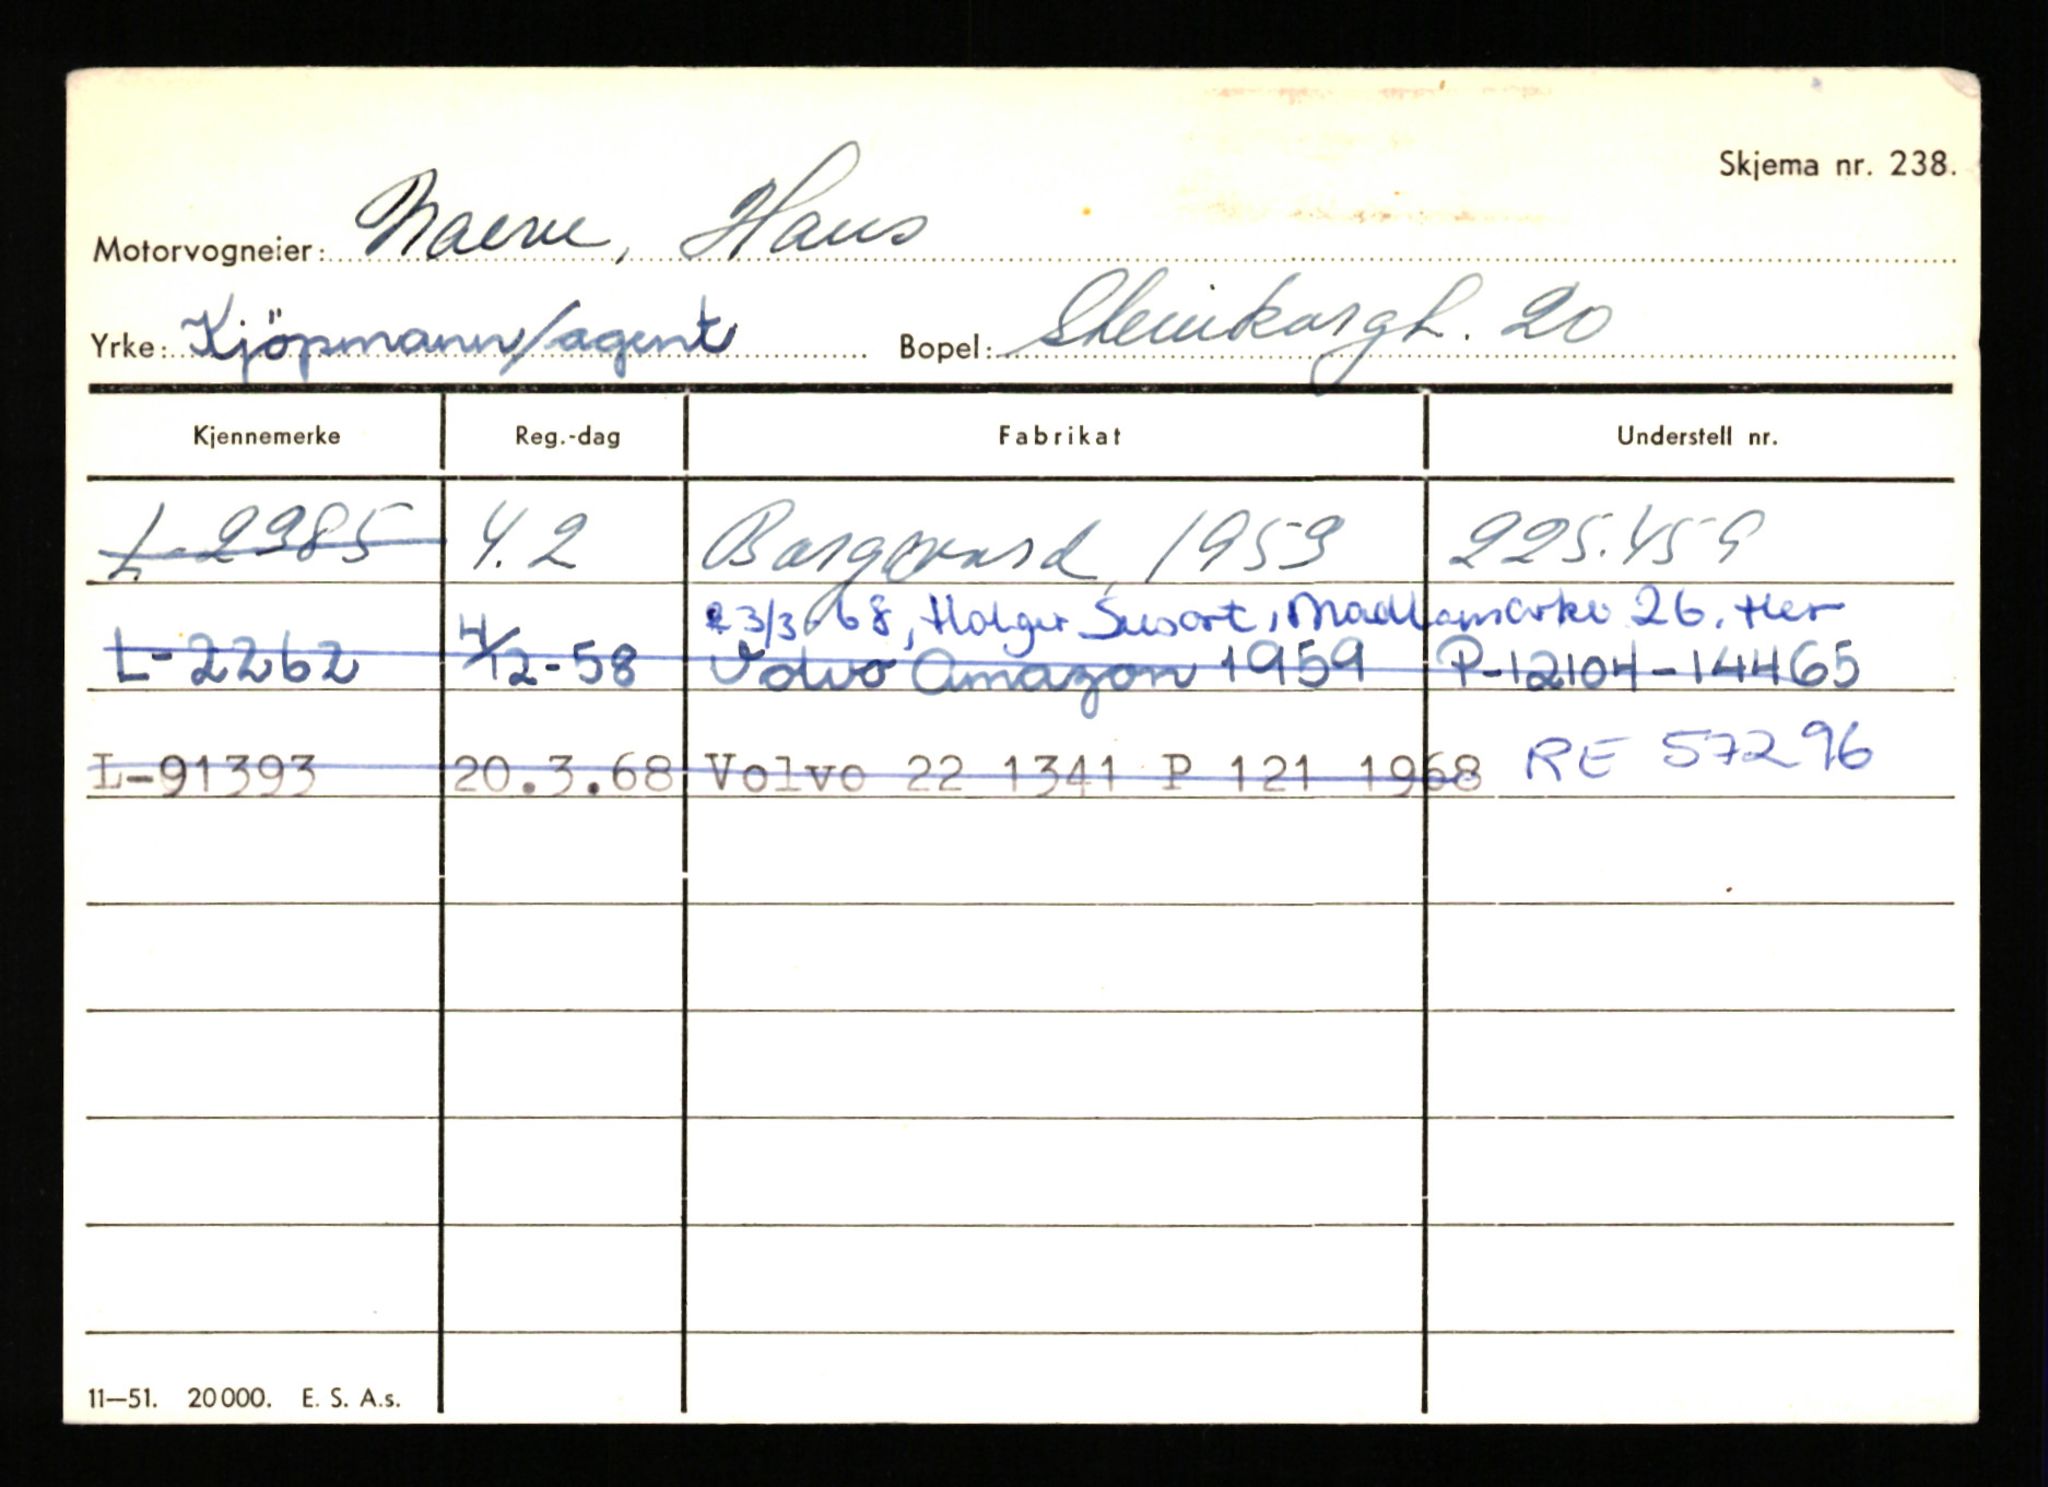 Skjema nr. 238.
Motorvogneier: Naeve, Hans
Yrke: Kjöpmann/agent Bopel: Steinkargt. 20
Kjennemerke Reg.-dag Fabrikat Understell nr.
L-2985 4.2 Borgward, 1953 225.459
23/3-68, Holger Susort, Madlamarkv 26. Her
L-2262 4/12-58 Volvo Amazon 1959 P-12104-14465
L-91393 20.3.68 Volvo 22 1341 P 121 1968 RE 57296
11—51. 20000. E. S. A.s.